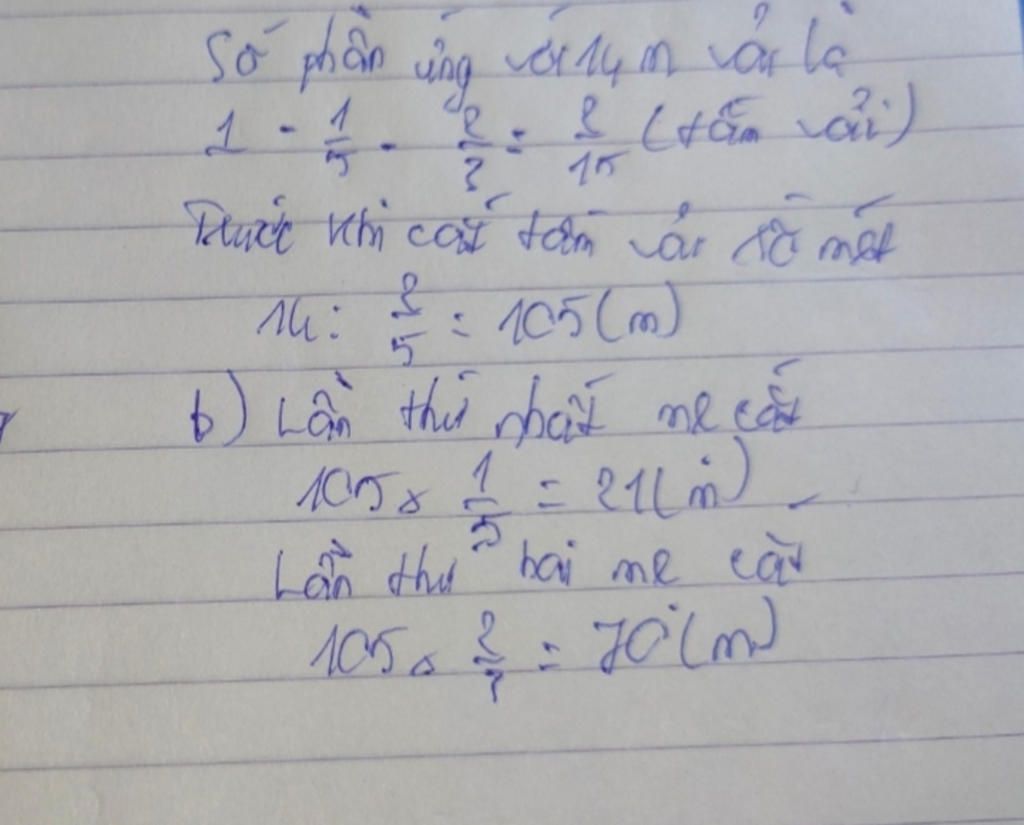 Số phần ứng với 14 m vải là
1 - 1/5 - 2/3 = 2/15 (tấm vải)
Trước khi cắt tấm vải số mét
14 : 2/5 = 105 (m)
b) Lần thứ nhất mẹ cắt
105 x 1/5 = 21 (m)
Lần thứ hai mẹ cắt
105 x 2/3 = 70 (m)